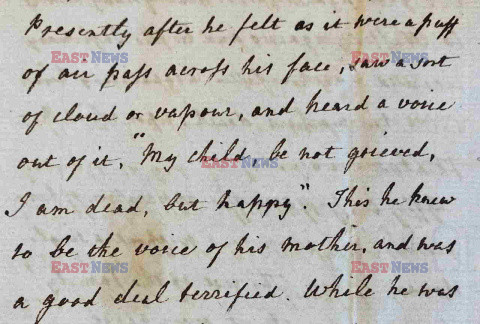 Presently after he felt as it were a puff
of air pass across his face, saw a sort
of cloud or vapour, and heard a voice
out of it, "My child, be not grieved,
I am dead, but happy". This he knew
to be the voice of his mother, and was
a good deal terrified. While he was
EAST NEWS
EAST NEWS
EAST NEWS
EAST NEWS
EAST NEWS
EAST NEWS